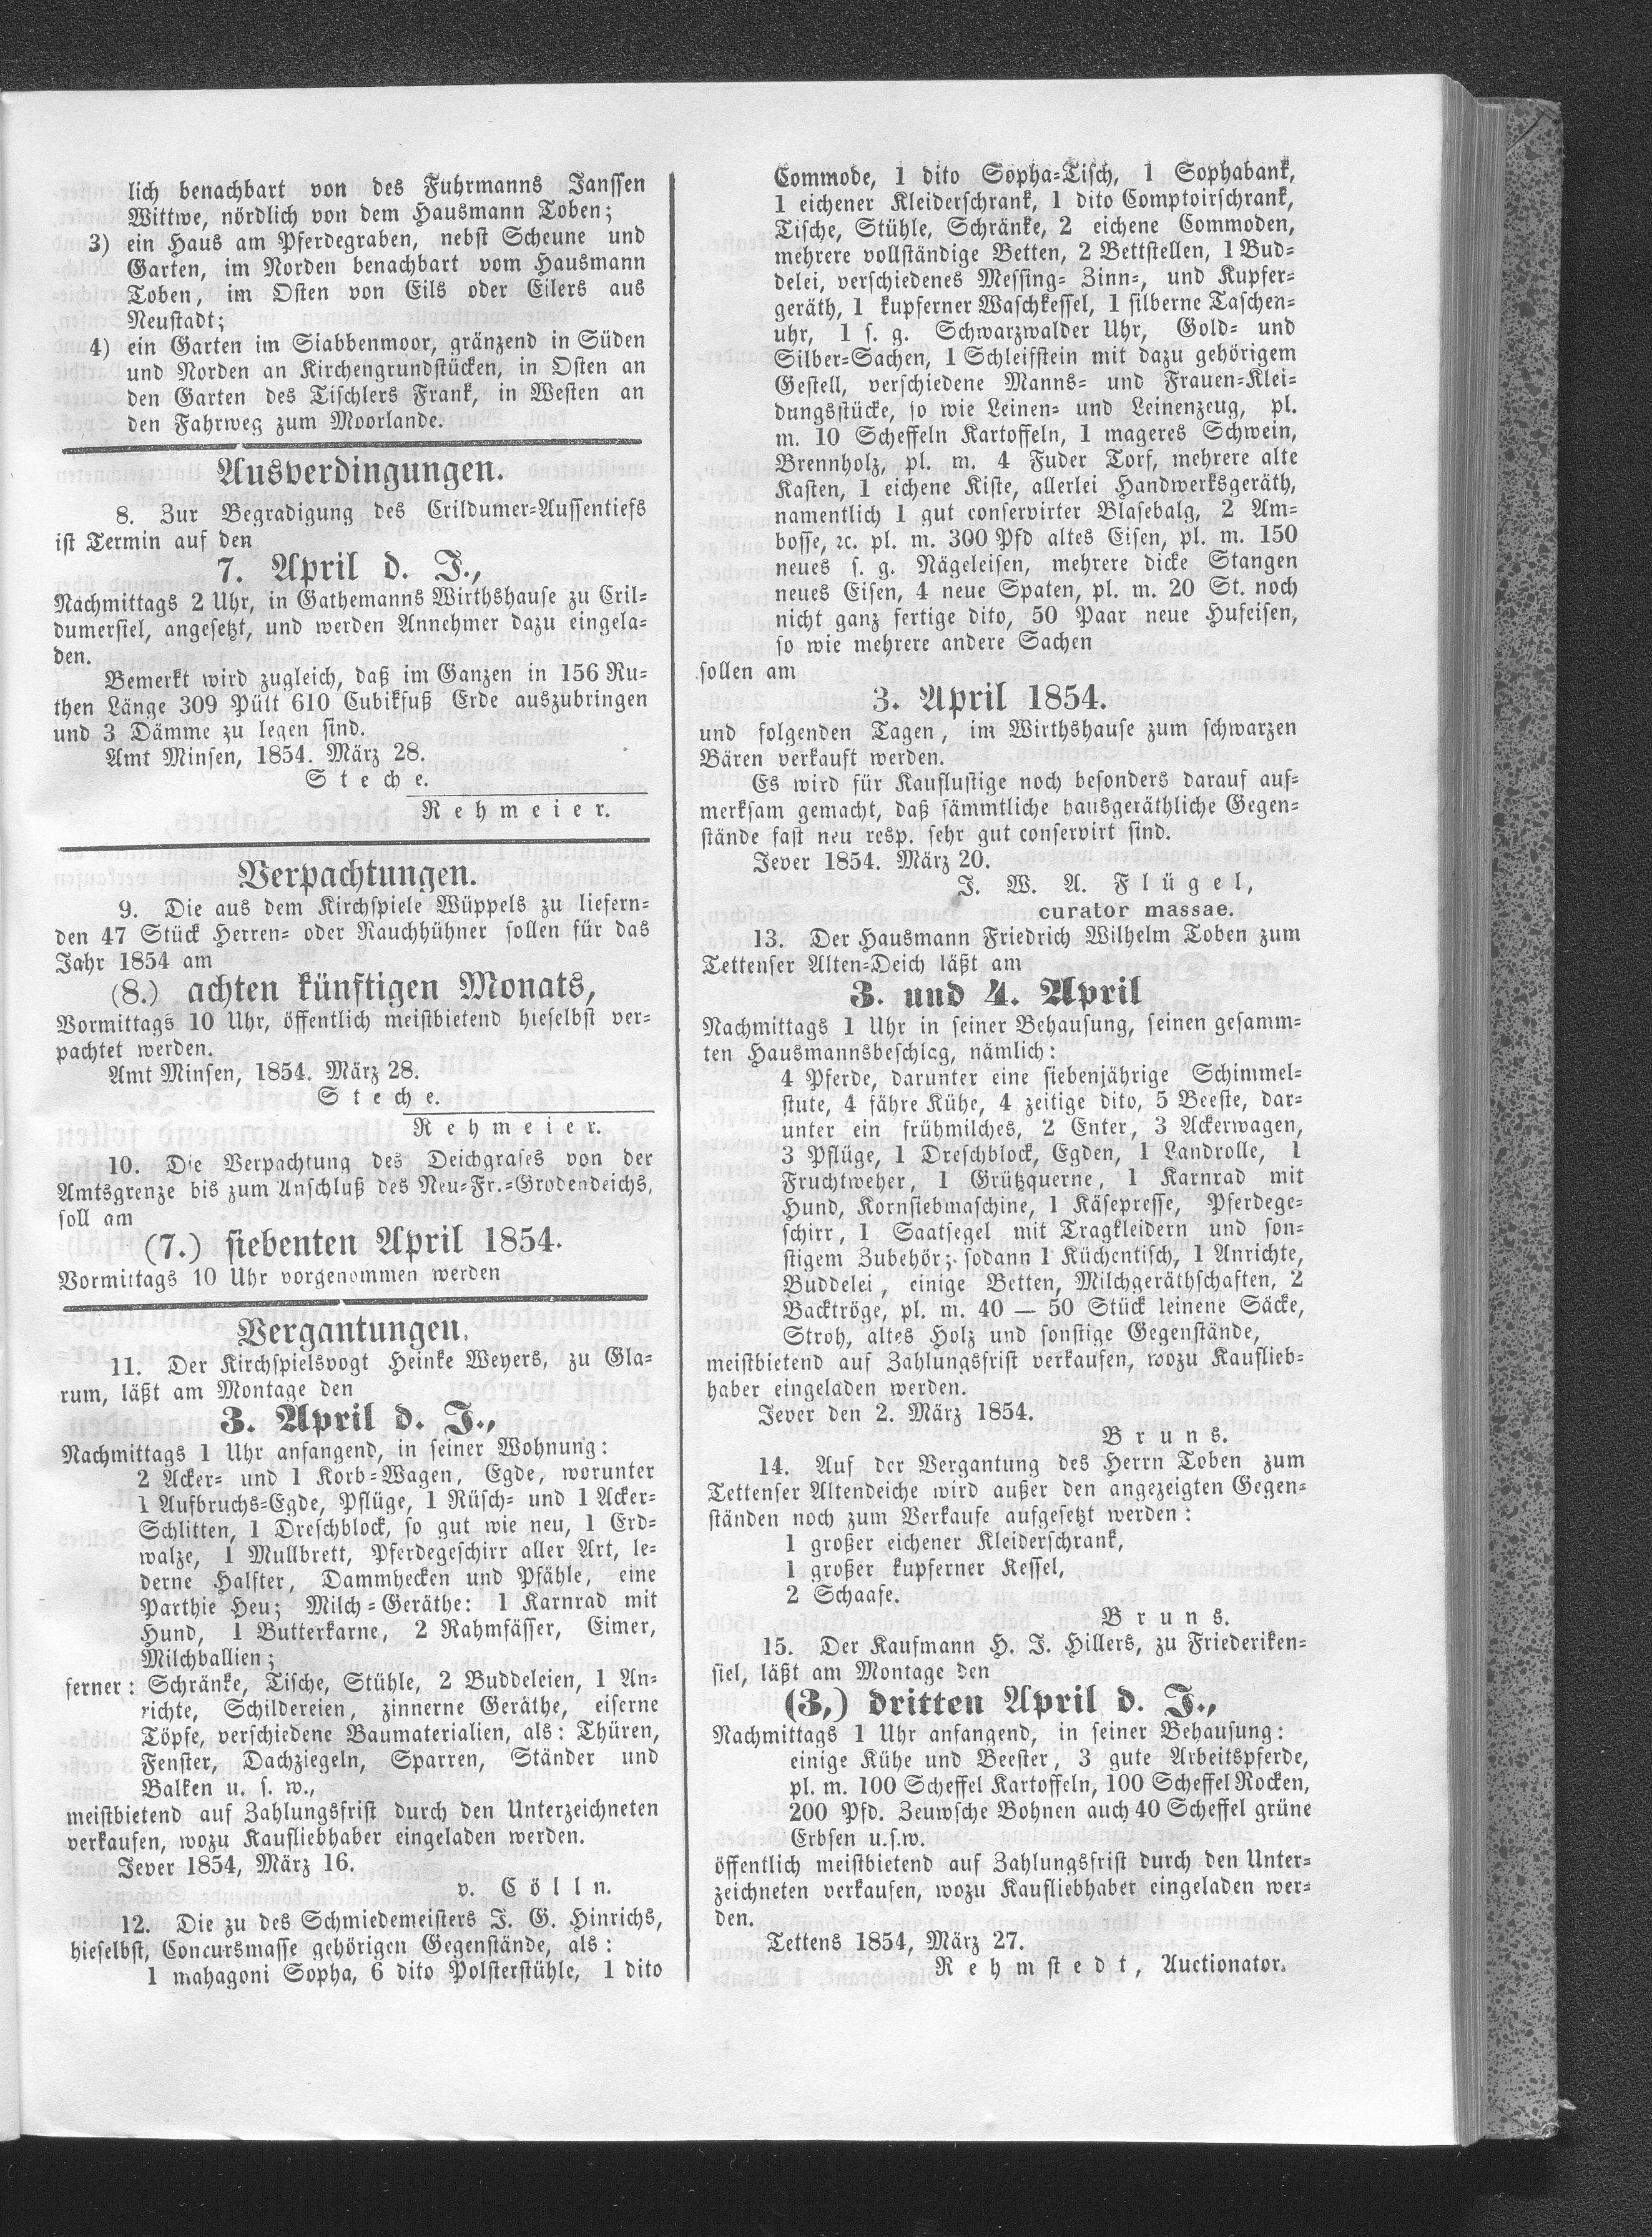 lich benachbart von des Fuhrmanns Janssen
Wittwe, nördlich von dem Hausmann Toben;
3) ein Haus am Pferdegraben, nebst Scheune und
Garten, im Norden benachbart vom Hausmann
Toben, im Osten von Eils oder Eilers aus
Neustadt;
4) ein Garten im Siabbenmoor, gränzend in Süden
und Norden an Kirchengrundstücken, in Osten an
den Garten des Tischlers Frank, in Westen an
den Fahrweg zum Moorlande.
Ausverdingungen.
8. Zur Begradigung des Crildumer-Aussentiefs
ist Termin auf den
7. April d. J.,
Nachmittags 2 Uhr, in Gathemanns Wirthshause zu Cril-
dumersiel, angesetzt, und werden Annehmer dazu eingela-
den.
Bemerkt wird zugleich, daß im Ganzen in 156 Ru-
then Länge 309 Pült 610 Cubikfuß Erde auszubringen
und 3 Dämme zu legen sind.
Amt Minsen, 1854. März 28.
Steche.
Rehmeier.
Verpachtungen.
9. Die aus dem Kirchspiele Wüppels zu liefern-
den 47 Stück Herren- oder Rauchhühner sollen für das
Jahr 1854 am
(8.) achten künftigen Monats,
Vormittags 10 Uhr, öffentlich meistbietend hieselbst ver-
pachtet werden.
Amt Minsen, 1854. März 28.
Steche.
Rehmeier.
10. Die Verpachtung des Deichgrases von der
Amtsgrenze bis zum Anschluß des Neu-Fr.-Grodendeichs,
soll am
(7.) siebenten April 1854.
Vormittags 10 Uhr vorgenommen werden
Vergantungen.
11. Der Kirchspielsvogt Heinke Weyers, zu Gla-
rum, läßt am Montage den
3. April d. J.,
Nachmittags 1 Uhr anfangend, in seiner Wohnung:
2 Acker- und 1 Korb-Wagen, Egde, worunter
1 Aufbruchs-Egde, Pflüge, 1 Rüsch- und 1 Acker-
Schlitten, 1 Dreschblock, so gut wie neu, 1 Erd-
walze, 1 Mullbrett, Pferdegeschirr aller Art, le-
derne Halfter, Dammhecken und Pfähle, eine
Parthie Heu; Milch-Geräthe: 1 Karnrad mit
Hund, 1 Butterkarne, 2 Rahmfässer, Eimer,
Milchballien;
ferner: Schränke, Tische, Stühle, 2 Buddeleien, 1 An-
richte, Schildereien, zinnerne Geräthe, eiserne
Töpfe, verschiedene Baumaterialien, als: Thüren,
Fenster, Dachziegeln, Sparren, Ständer und
Balken u. s. w.,
meistbietend auf Zahlungsfrist durch den Unterzeichneten
verkaufen, wozu Kaufliebhaber eingeladen werden.
Jever 1854, März 16.
v. Cölln.
12. Die zu des Schmiedemeisters J. G. Hinrichs,
hieselbst, Concursmasse gehörigen Gegenstände, als:
1 mahagoni Sopha, 6 dito Polsterstühle, 1 dito
Commode, 1 dito Sopha-Tisch, 1 Sophabank,
1 eichener Kleiderschrank, 1 dito Comptoirschrank,
Tische, Stühle, Schränke, 2 eichene Commoden,
mehrere vollständige Betten, 2 Bettstellen, 1 Bud-
delei, verschiedenes Messing- Zinn-, und Kupfer-
geräth, 1 kupferner Waschkessel, 1 silberne Taschen-
uhr, 1 s. g. Schwarzwalder Uhr, Gold- und
Silber-Sachen, 1 Schleifstein mit dazu gehörigem
Gestell, verschiedene Manns- und Frauen-Klei-
dungsstücke, so wie Leinen- und Leinenzeug, pl.
m. 10 Scheffeln Kartoffeln, 1 mageres Schwein,
Brennholz, pl. m. 4 Fuder Torf, mehrere alte
Kasten, 1 eichene Kiste, allerlei Handwerksgeräth,
namentlich 1 gut conservirter Blasebalg, 2 Am-
bosse, ꝛc. pl. m. 300 Pfd altes Eisen, pl. m. 150
neues s. g. Nägeleisen, mehrere dicke Stangen
neues Eisen, 4 neue Spaten, pl. m. 20 St. noch
nicht ganz fertige dito, 50 Paar neue Hufeisen,
so wie mehrere andere Sachen
sollen am
3. April 1854.
und folgenden Tagen, im Wirthshause zum schwarzen
Bären verkauft werden.
Es wird für Kauflustige noch besonders darauf auf-
merksam gemacht, daß sämmtliche hausgeräthliche Gegen-
stände fast neu resp. sehr gut conservirt sind.
Jever 1854. März 20.
J. W. A. Flügel,
curator massae.
13. Der Hausmann Friedrich Wilhelm Toben zum
Tettenser Alten-Deich läßt am
3. und 4. April
Nachmittags 1 Uhr in seiner Behausung, seinen gesamm-
ten Hausmannsbeschlag, nämlich:
4 Pferde, darunter eine siebenjährige Schimmel-
stute, 4 fähre Kühe, 4 zeitige dito, 5 Beeste, dar-
unter ein frühmilches, 2 Enter, 3 Ackerwagen,
3 Pflüge, 1 Dreschblock, Egden, 1 Landrolle, 1
Fruchtweher, 1 Grützquerne, 1 Karnrad mit
Hund, Kornsiebmaschine, 1 Käsepresse, Pferdege-
schirr, 1 Saatsegel mit Tragkleidern und son-
stigem Zubehör; sodann 1 Küchentisch, 1 Anrichte,
Buddelei, einige Betten, Milchgeräthschaften, 2
Backtröge, pl. m. 40 — 50 Stück leinene Säcke,
Stroh, altes Holz und sonstige Gegenstände,
meistbietend auf Zahlungsfrist verkaufen, wozu Kauflieb-
haber eingeladen werden.
Jever den 2. März 1854.
Bruns.
14. Auf der Vergantung des Herrn Toben zum
Tettenser Altendeiche wird außer den angezeigten Gegen-
ständen noch zum Verkaufe aufgesetzt werden:
1 großer eichener Kleiderschrank,
1 großer kupferner Kessel,
2 Schaafe.
Bruns.
15. Der Kaufmann H. J. Hillers, zu Friederiken-
siel, läßt am Montage den
(3,) dritten April d. J.,
Nachmittags 1 Uhr anfangend, in seiner Behausung:
einige Kühe und Beester, 3 gute Arbeitspferde,
pl. m. 100 Scheffel Kartoffeln, 100 Scheffel Rocken,
200 Pfd. Zeuwsche Bohnen auch 40 Scheffel grüne
Erbsen u.s.w.
öffentlich meistbietend auf Zahlungsfrist durch den Unter-
zeichneten verkaufen, wozu Kaufliebhaber eingeladen wer-
den.
Tettens 1854, März 27.
Rehmstedt, Auctionator.